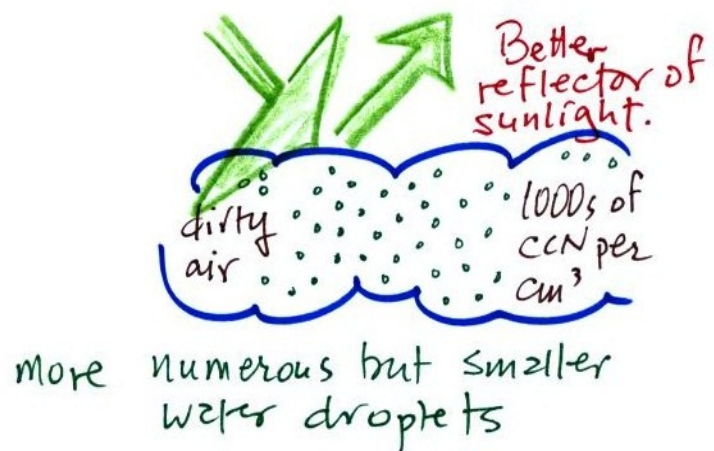 Better
reflector of
sunlight.
dirty
air
1000s of
CCN per
cm³
more numerous but smaller
water droplets